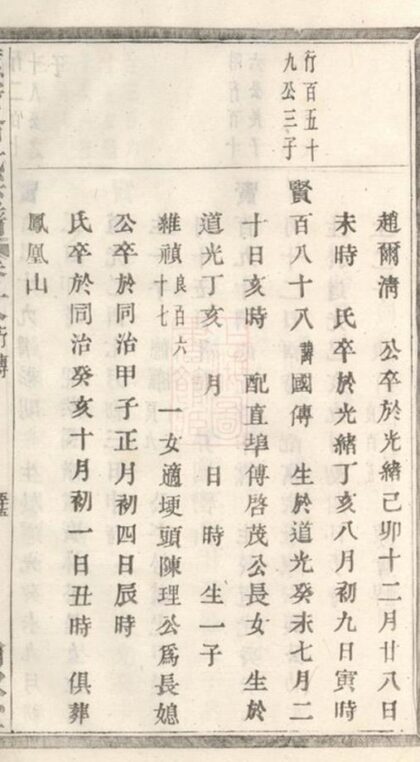 行百五十
九公三子
趙爾濤 公卒於光緒己卯十二月廿八日
未時 氏卒於光緒丁亥八月初九日寅時
賢百八十八 諱國傳 生於道光癸未七月二
十日亥時 配直埠傅啓茂公長女 生於
道光丁亥 月 日時 生一子
維禎 良百六十七 一女適埂頭陳理公爲長媳
公卒於同治甲子正月初四日辰時
氏卒於同治癸亥十月初一日丑時 俱葬
鳳凰山
行傳